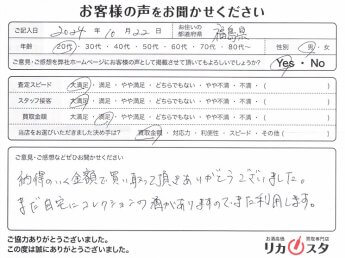 お客様の声をお聞かせください
ご記入日 2024年10月22日 お住いの都道府県 福島県
年齢 20代・30代・40代・50代・60代・70代・80代〜 性別 男・女
ご意見・ご感想を弊社ホームページにお客様の声として掲載させて頂いてもよろしいでしょうか? Yes・No
査定スピード 大満足・満足・やや満足・どちらでもない・やや不満・不満・(
スタッフ接客 大満足・満足・やや満足・どちらでもない・やや不満・不満・(
買取金額 大満足・満足・やや満足・どちらでもない・やや不満・不満・(
当店をお選びいただきました決め手は? 買取金額・対応力・利便性・スピード・その他(
ご意見・ご感想などぜひお聞かせください
納得のいく金額で買い取って頂きありがとうございました。
まだ自宅にコレクションの酒がありますのでまた利用します。
ご協力ありがとうございました。
この度は誠にありがとうございました。
お酒高価 買取専門店
リカスタ